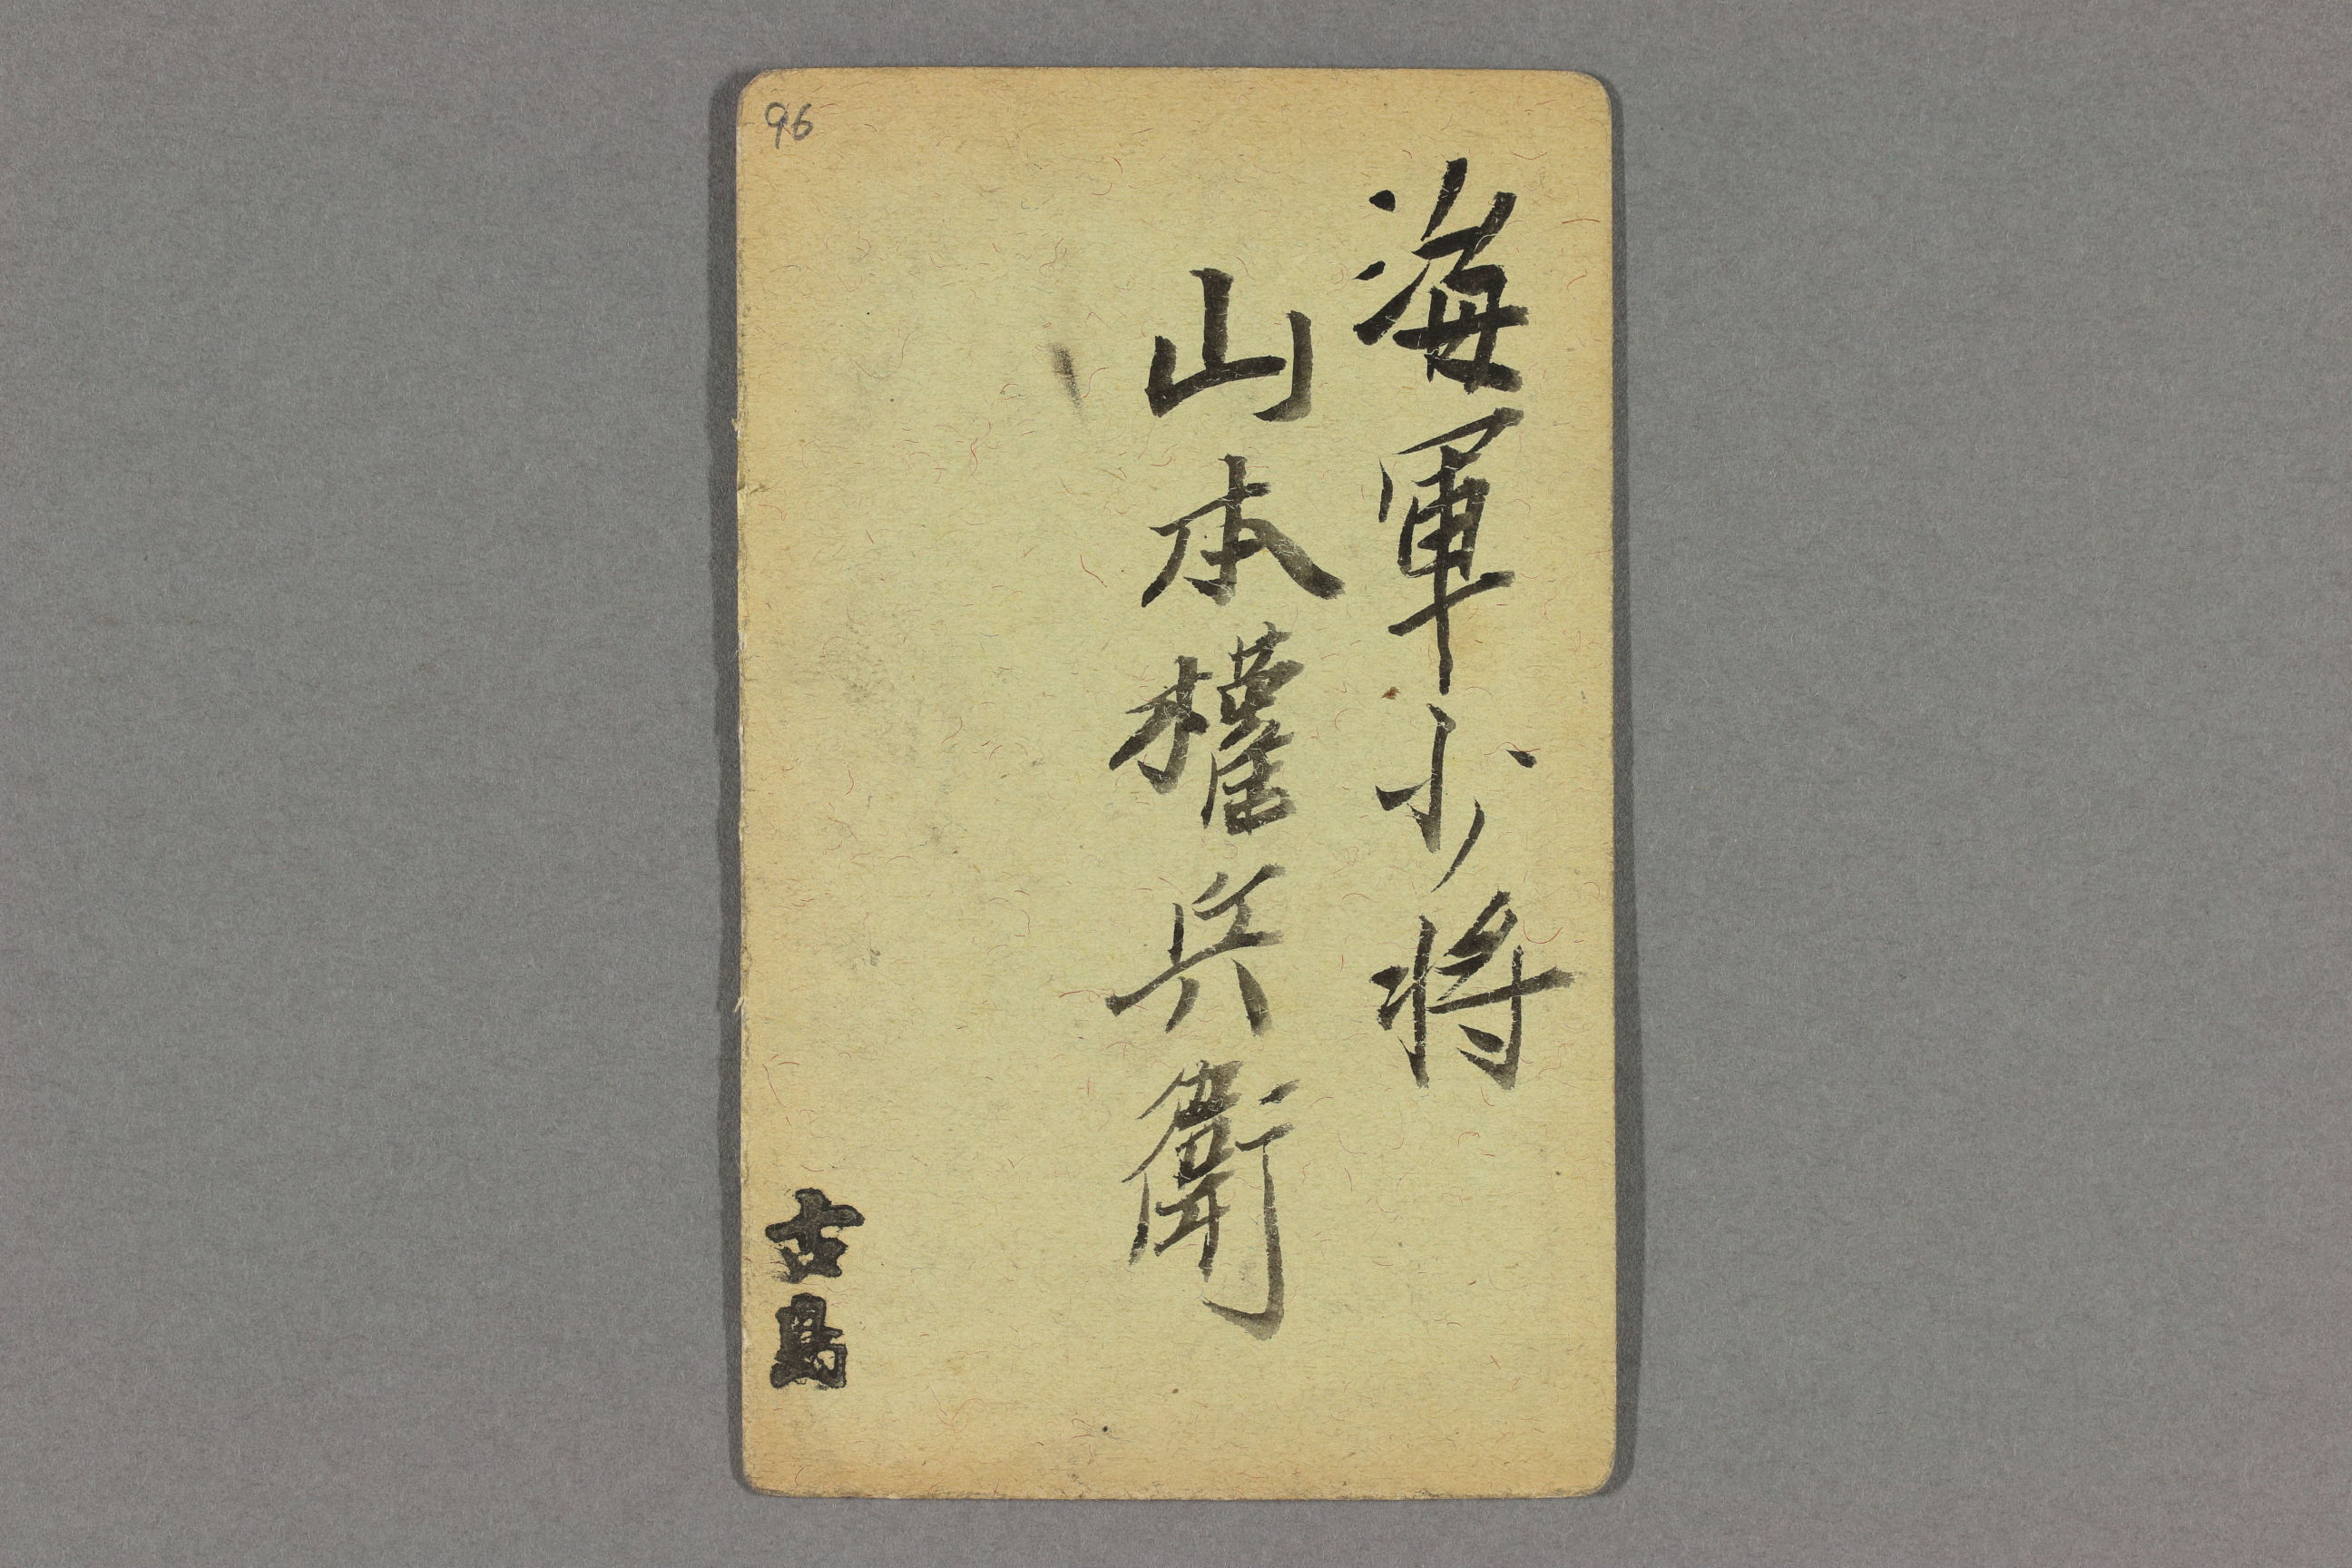 海軍少将
山本權兵衛
古島
96